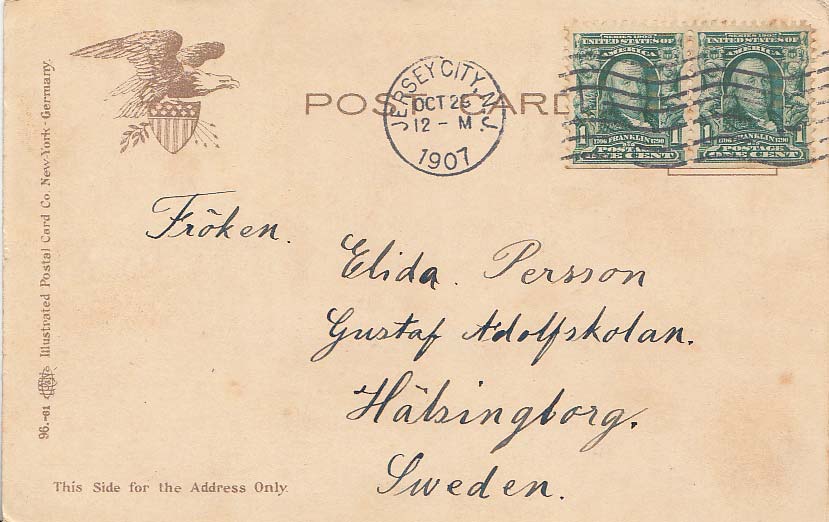 POST CARD
JERSEY CITY, N.J.
OCT 29
12 - M
1907
SERIES 1902
UNITED STATES OF
AMERICA
1 FRANKLIN 1
1706 1790
POSTAGE
ONE CENT
SERIES 1902
UNITED STATES OF
AMERICA
1 FRANKLIN 1
1706 1790
POSTAGE
ONE CENT
Fröken.
Elida. Persson
Gustaf Adolfskolan.
Hälsingborg.
Sweden.
96.-61 Illustrated Postal Card Co. New-York-Germany.
This Side for the Address Only.